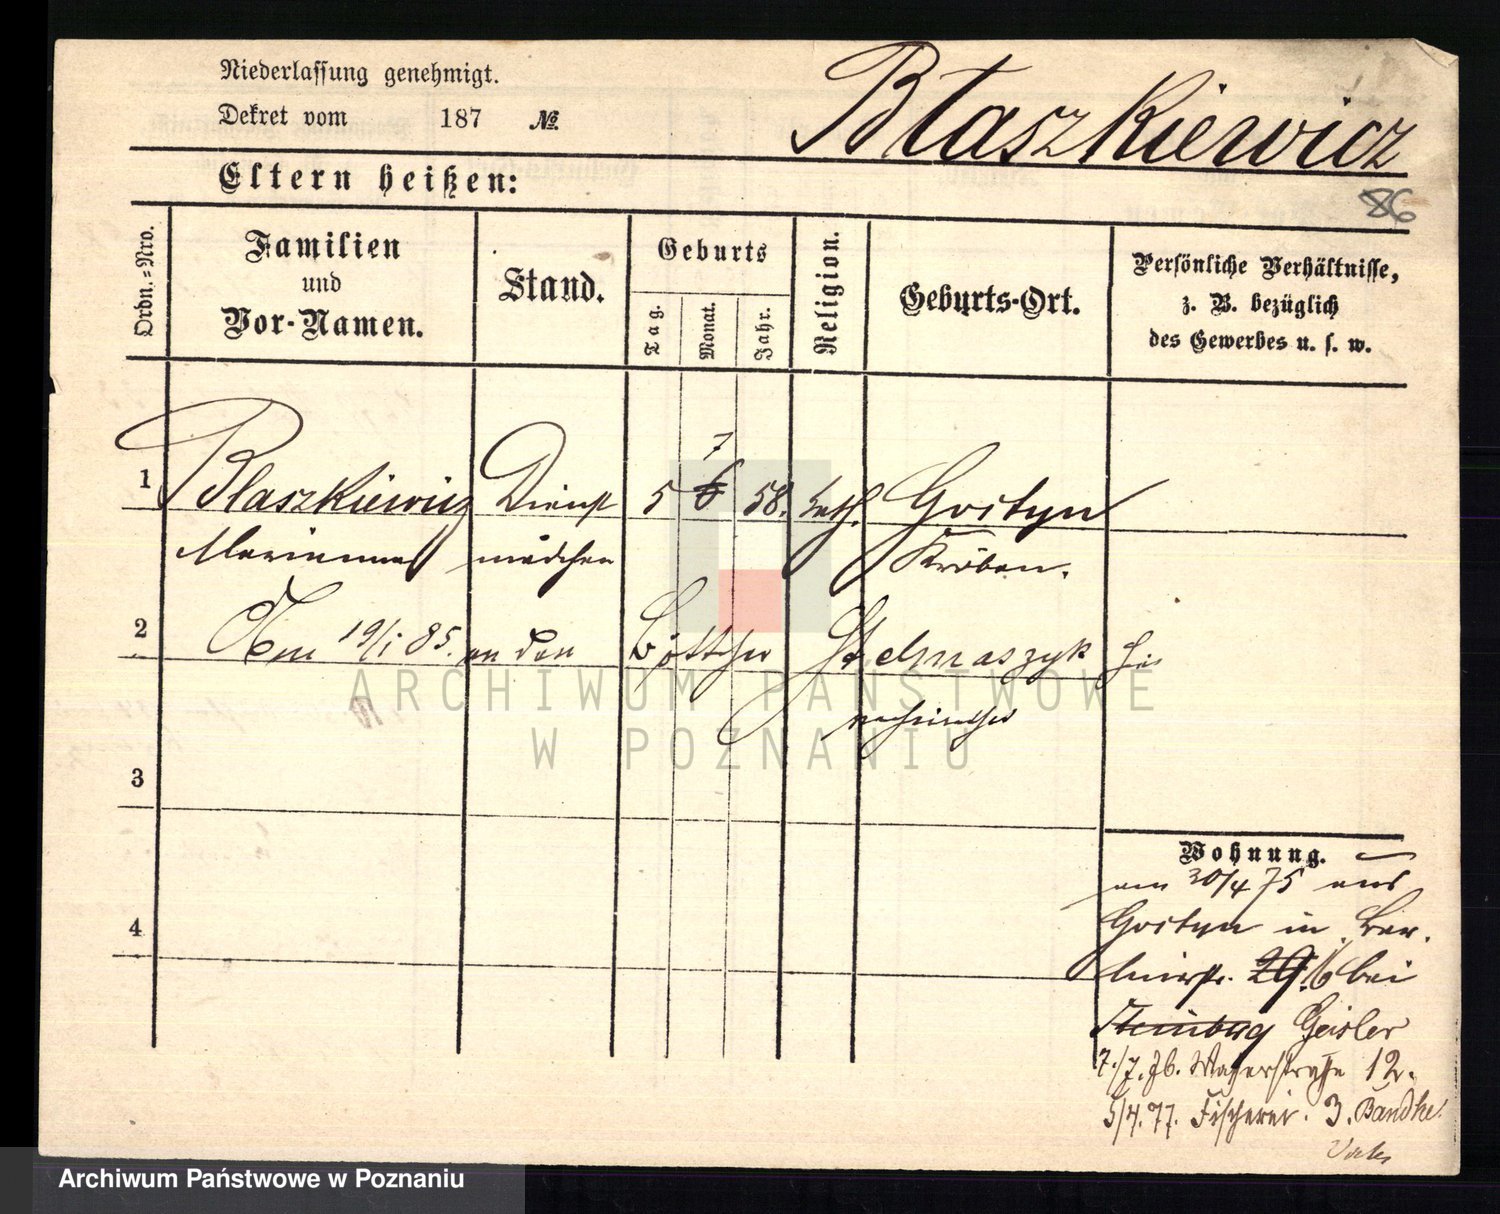 Niederlassung genehmigt.
Dekret vom 187 №
Błaszkiewicz
Eltern heißen:
86
Ordn.=Nro.
Familien
und
Vor-Namen.
Stand.
Geburts
Tag.
Monat.
Jahr.
Religion.
Geburts-Ort.
Persönliche Verhältnisse,
z. B. bezüglich
des Gewerbes u. s. w.
7
1 Blaszkiewicz Dienst 5 6 58. kath. Gostyn
Marianna mädchen Kröben.
2 Am 19/1 85. an den Böttcher Stelmaszyk hier
3
4
Wohnung.
am 30/4 75 aus
Gostyn in Ber.
linerstr. 29. 16 bei
Geisler
7./7. 76. Wasserstraße 12.
5/4. 77. Fischerei. 3. Bandke.
ARCHIWUM PAŃSTWOWE
W POZNANIU
Archiwum Państwowe w Poznaniu